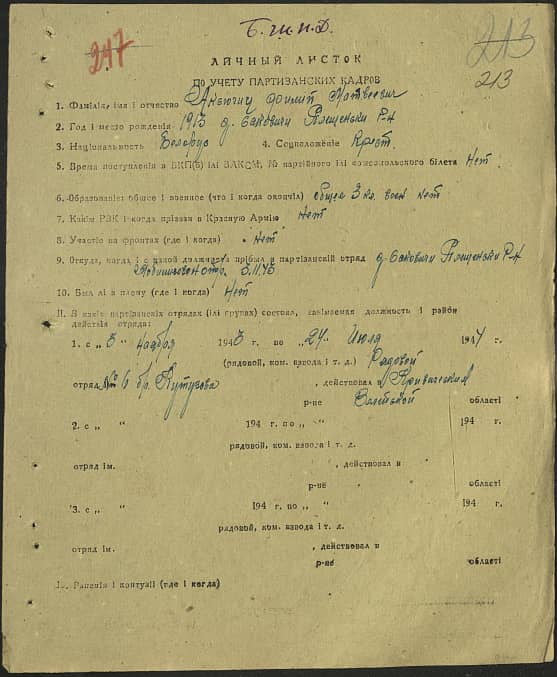 Б.Ш.П.Д.
247
213
213
ЛИЧНЫЙ ЛИСТОК
ПО УЧЕТУ ПАРТИЗАНСКИХ КАДРОВ
1. Фамілія, імя і отчество Филип Матвеевич
2. Год і место рождения 1913 д. Саковичи Плещеньки Р-н
3. Національность Белорус 4. Соцположение Крест.
5. Время поступления в ВКП(б) ілі ВЛКСМ, № партійного ілі комсомольского білета Нет.
6. Образованіе: общее і военное (что і когда окончіл) общее 3 кл. воен нет
7. Какім РВК і когда прізван в Красную Армію Нет
8. Участіе на фронтах (где і когда) Нет
9. Откуда, когда і с какой должності прібыл в партізанскій отряд д. Саковичи Плещеньки Р-н
3.11.43
10. Был лі в плену (где і когда) Нет
11. В какіх партізанскіх отрядах (ілі групах) состоял, занімаемая должность і район
действія отряда:
1. с „ 3 “ ноября 1943 г. по „ 24 “ Июля 1944 г.
(рядовой, ком. взвода і т. д.) Рядовой
отряд №6 бр. Кутузова , действовал в Кривическим
р-не Вилейской області
2. с „ “ 194 г. по „ “ 194 г.
рядовой, ком. взвода і т. д.
отряд ім. , действовал в
р-не області
3. с „ “ 194 г. по „ “ 194 г.
рядовой, ком. взвода і т. д.
отряд ім. , действовал в
р-не області
Раненія і контузіі (где і когда)